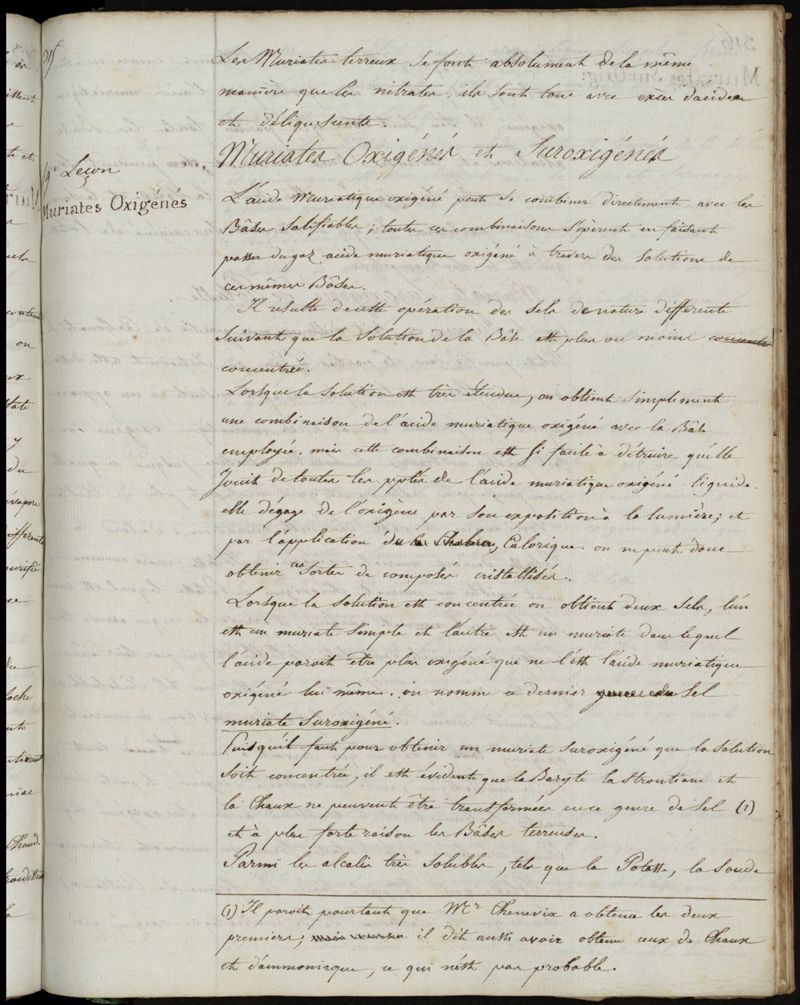 315
Les Muriates terreux se font absolument de la même
manière que les nitrates, ils sont tous avec excès d'acides
et déliquescents.
Muriates Oxigénés et Suroxigénés
Leçon
Muriates Oxigénés
L'acide muriatique oxigéné peut se combiner directement avec les
Bâses salifiables; toutes ces combinaisons s'opèrent en faisant
passer du gaz acide muriatique oxigéné à travers des solutions de
ces mêmes Bâses.
Il résulte de cette opération des sels de nature différente
suivant que la solution de la Bâse est plus ou moins
concentrée.
Lorsque la solution est très étendue, on obtient simplement
une combinaison de l'acide muriatique oxigéné avec la Bâse
employée. mais cette combinaison est si facile à détruire qu'elle
jouit de toutes les pptés de l'acide muriatique oxigéné liquide.
elle dégage de l'oxigène par son exposition à la lumière; et
par l'application du Calorique. on ne peut donc
obtenir ces sortes de composés cristallisés.
Lorsque la solution est concentrée on obtient deux sels, l'un
est un muriate simple et l'autre est un muriate dans lequel
l'acide paroit être plus oxigéné que ne l'est l'acide muriatique
oxigéné lui même. on nomme ce dernier sel
muriate suroxigéné.
Puisqu'il faut pour obtenir un muriate suroxigéné que la solution
soit concentrée, il est évident que la Baryte la Strontiane et
la Chaux ne peuvent être transformées en ce genre de sel (1)
et à plus forte raison les Bâses terreuses.
Parmi les alcalis très solubles, tels que la Potasse, la Soude
(1) Il paroit pourtant que Mr Chenevix a obtenu les deux
premiers; il dit aussi avoir obtenu ceux de Chaux
et d'ammoniaque, ce qui n'est pas probable.